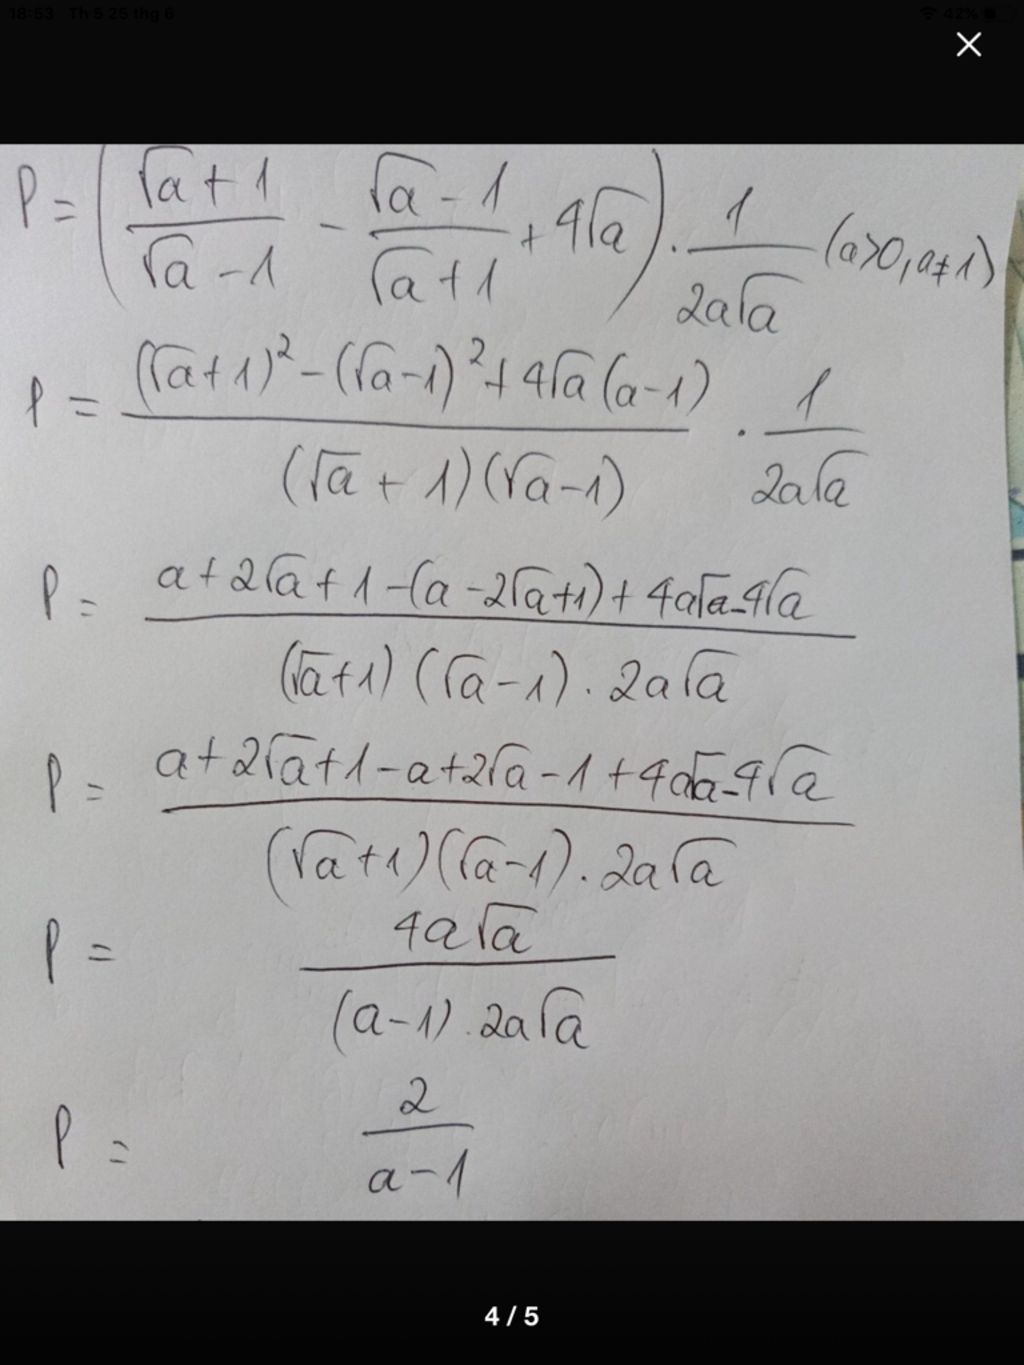 18:53 Th 5 25 thg 6 42%
P = ( (√a + 1)/(√a - 1) - (√a - 1)/(√a + 1) + 4√a ) . 1/(2a√a) (a>0, a≠1)
P = ((√a+1)² - (√a-1)² + 4√a(a-1))/((√a + 1)(√a-1)) . 1/(2a√a)
P = (a + 2√a + 1 - (a - 2√a+1) + 4a√a - 4√a)/((√a+1)(√a-1) . 2a√a)
P = (a + 2√a + 1 - a + 2√a - 1 + 4a√a - 4√a)/((√a+1)(√a-1) . 2a√a)
P = (4a√a)/((a-1) . 2a√a)
P = 2/(a-1)
4 / 5